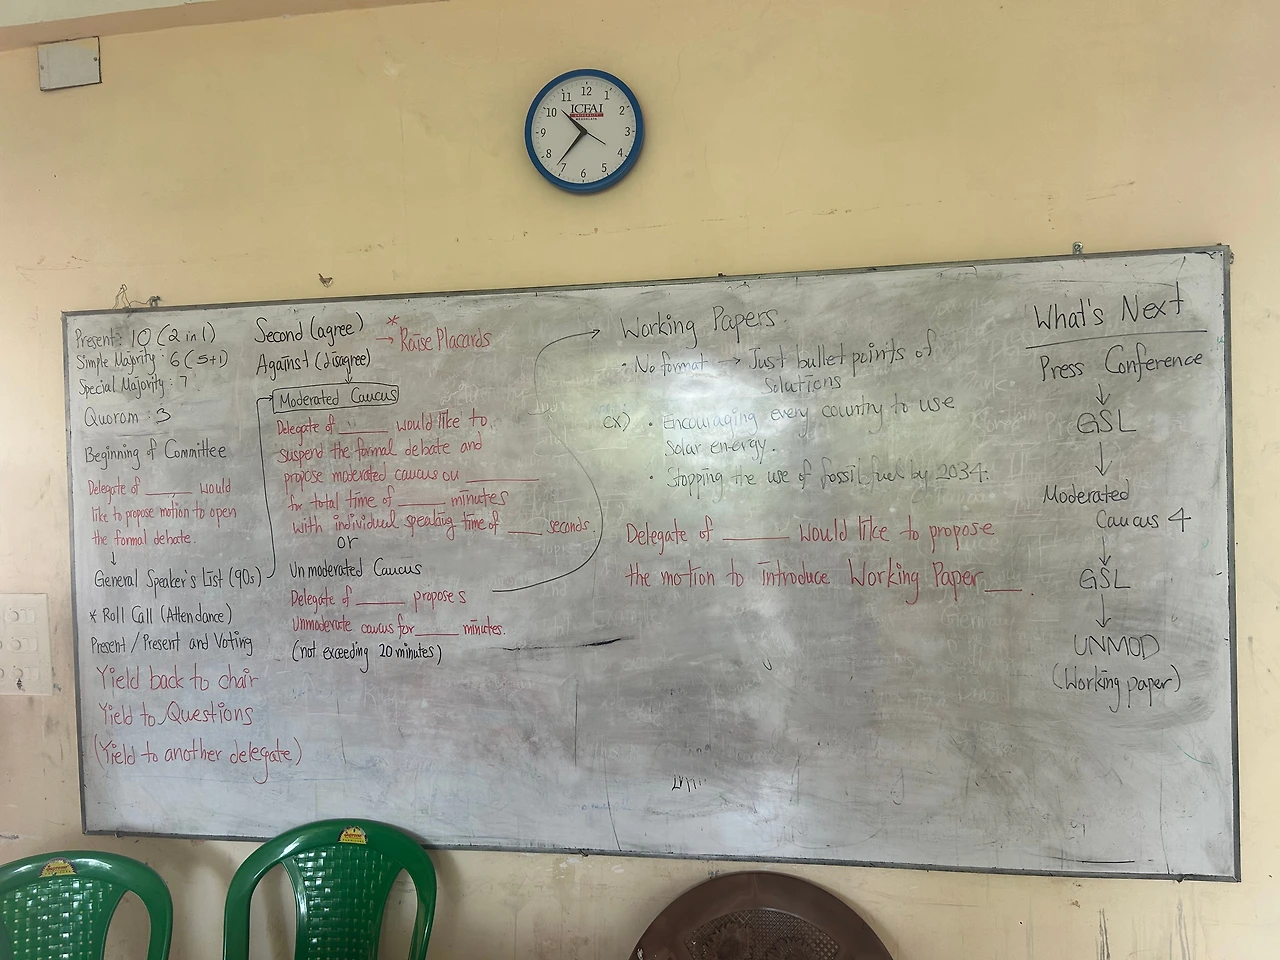 12
11 1
10 2
9 3
8 4
7 5
6
ICFAI
UNIVERSITY
Present: 10 (2 in 1)
Simple Majority: 6 (5+1)
Special Majority: 7
Quorom: 3
Beginning of Committee
Delegate of ______ would
like to propose motion to open
the formal debate.
↓
General Speaker's List (90s)
* Roll Call (Attendance)
Present / Present and Voting
Yield back to chair
Yield to Questions
(Yield to another delegate)
Second (agree)
Against (disagree)
* → Raise Placards
Moderated Caucus
Delegate of ______ would like to
suspend the formal debate and
propose moderated caucus on ______
for total time of ______ minutes
with individual speaking time of ____ seconds.
or
Unmoderated Caucus
Delegate of ______ proposes
Unmoderate caucus for ______ minutes.
(not exceeding 20 minutes)
Working Papers.
• No format → Just bullet points of
Solutions
ex) • Encouraging every country to use
Solar energy.
• Stopping the use of fossil fuel by 2034.
Delegate of ______ would like to propose
the motion to introduce Working Paper ____.
What's Next
Press Conference
↓
GSL
↓
Moderated
Caucus 4
↓
GSL
↓
UNMOD
(Working paper)